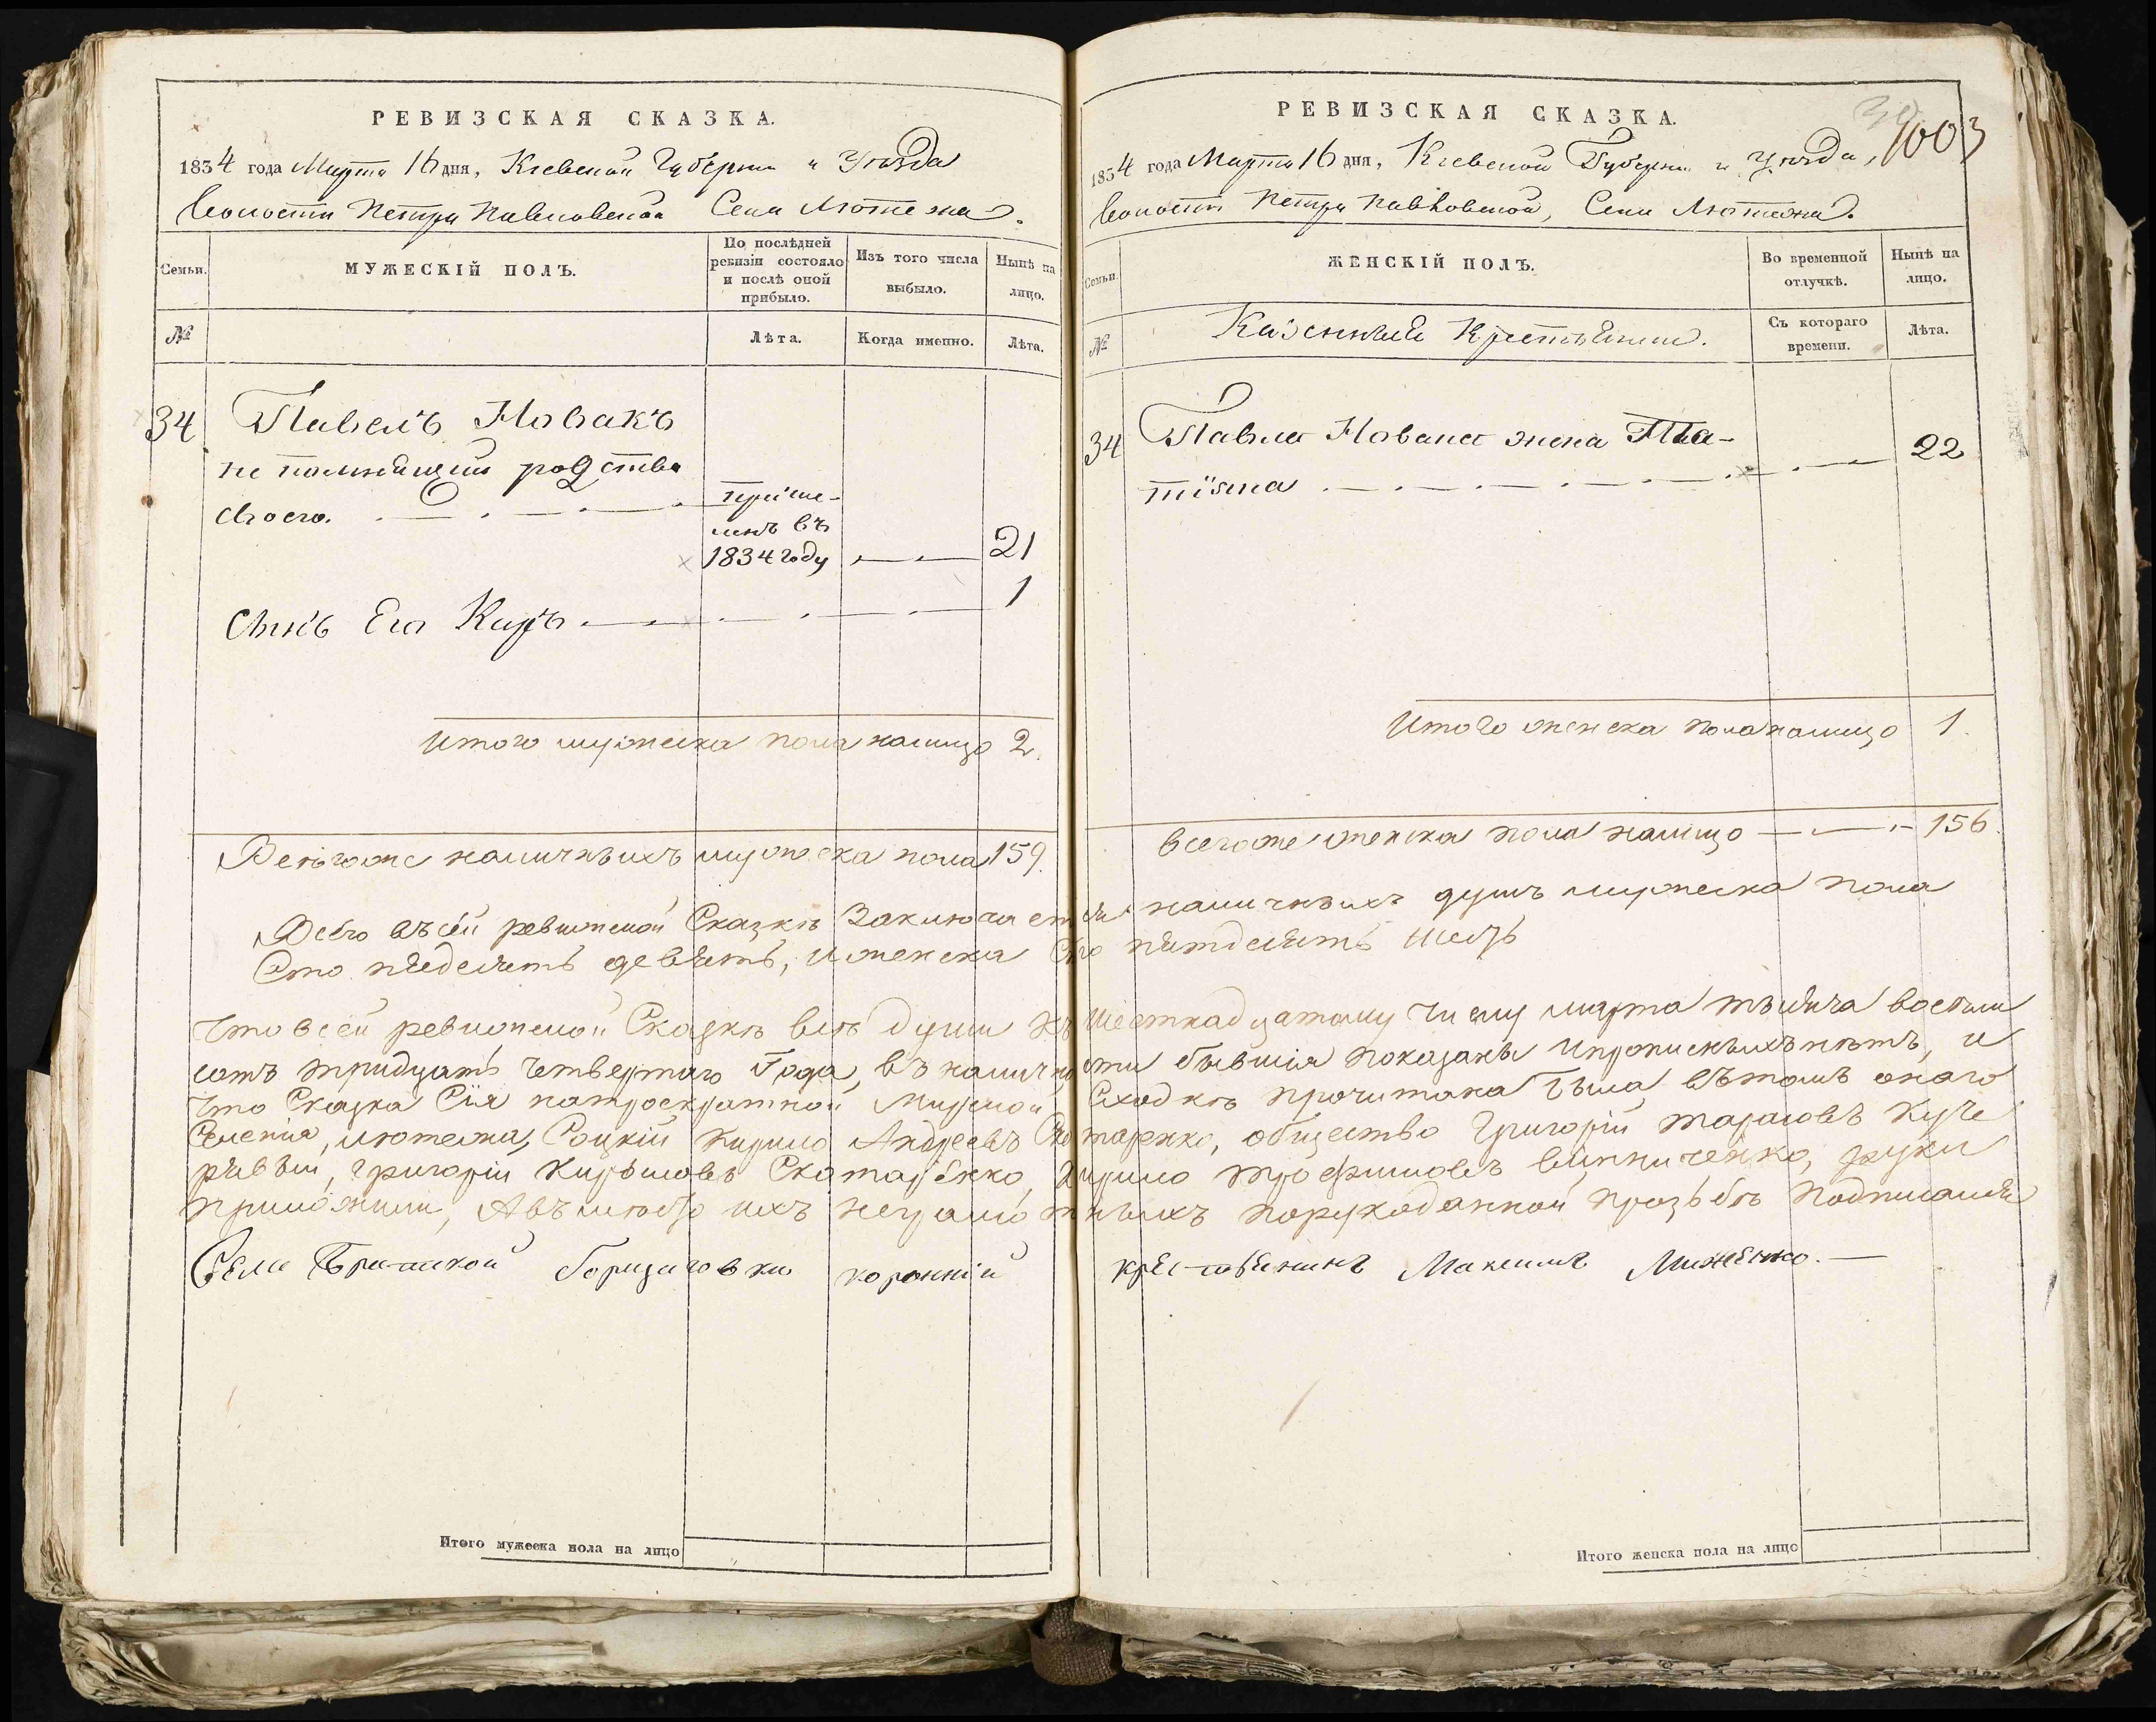 РЕВИЗСКАЯ СКАЗКА.
1834 года Марта 16 дня, Кіевской Губерніи и Уѣзда
Волости Петра Павловской Села Лютежа.
Семьи.
МУЖЕСКІЙ ПОЛЪ.
По послѣдней ревизіи состояло и послѣ оной прибыло.
Изъ того числа выбыло.
Нынѣ на лицо.
№
Лѣта.
Когда именно.
Лѣта.
34 Павелъ Новакъ
не помнящій родства
своего.
причи-
сленъ въ
1834 году 21
Сынъ Его Карпъ 1
Итого мужеска пола налицо 2.
Всего же наличныхъ мужеска пола 159.
РЕВИЗСКАЯ СКАЗКА.
1003
1834 года Марта 16 дня, Кіевской Губерніи и Уѣзда,
Волости Петра Павловской, Села Лютежа.
Семьи.
ЖЕНСКІЙ ПОЛЪ.
Во временной отлучкѣ.
Нынѣ на лицо.
№
Казенныи Крестьяни.
Съ котораго времени.
Лѣта.
34 Павла Новака жена Та-
тіяна 22
Итого женска пола налицо 1.
Всегоже женска пола налицо 156.
Всего въ сей ревижской Сказкѣ Заключается наличныхъ душъ мужеска пола
Сто пядесятъ девять, и женска Сто пятдесятъ шесть
Что в сей ревижской Сказкѣ всѣ души къ шестнадцатому числу марта мѣсяца восемь
сотъ тридцать четвертаго Года, въ наличности бывшія показаны и прописныхъ нѣтъ, и
что Сказка Сія на троекратной мирской Сходкѣ прочитана была, въ томъ онаго
Селенія, лютежа, Соцкій Кирило Андреевъ Скотаренко, общество Григорій Тарасовъ Куче
рявый, Григорій Кириловъ Скотаренко, Кирило Трофимовъ Винниченко, руки
приложили, А вмѣсто ихъ неграмотныхъ по рукоданной прозьбѣ Подписался
Села Братской Борщаговки коронній крестьянинъ Максимъ Миженко.
Итого мужеска пола на лицо
Итого женска пола на лицо